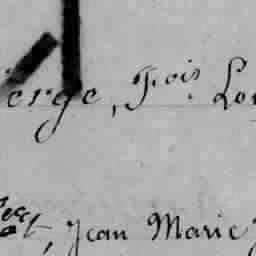 erge, Fois. Lou
t, Jean Marie